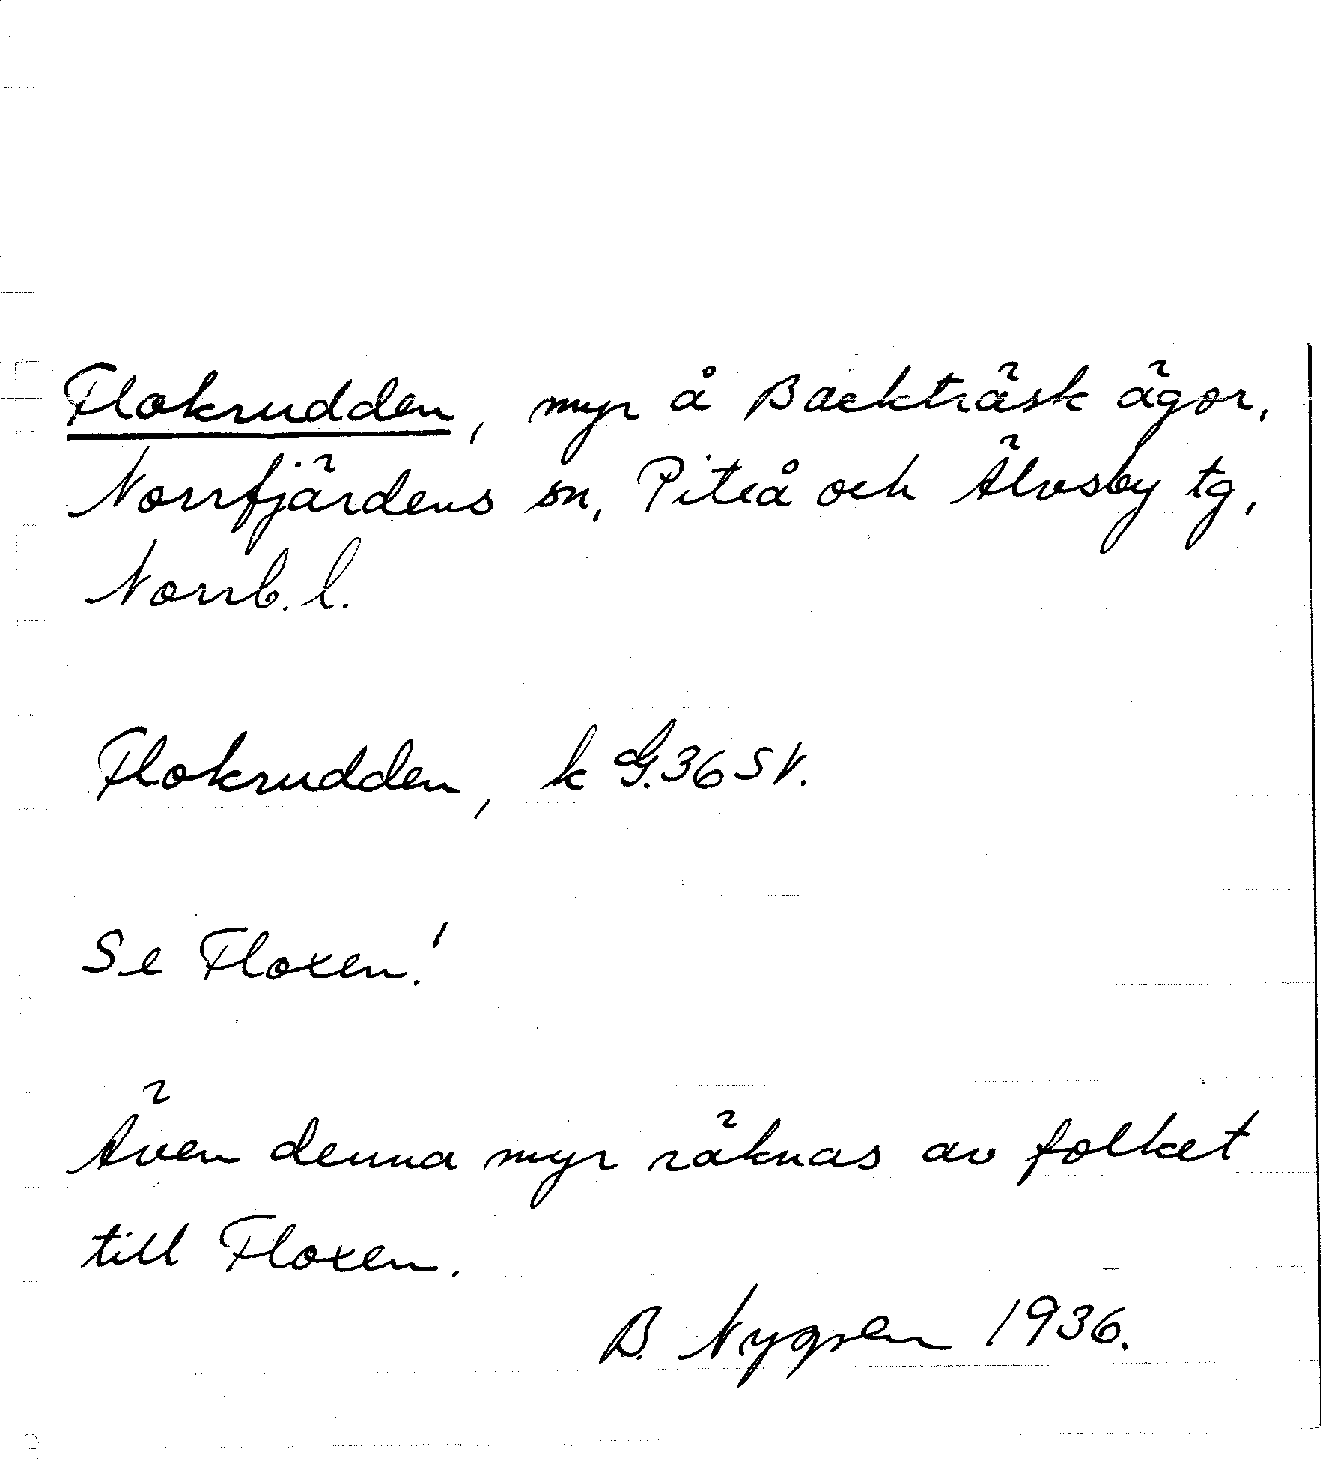 Flokrudden, myr å Backträsk ägor,
Norrfjärdens sn, Piteå och Älvsby tg,
Norrb. l.
Flokrudden, k G.36 SV.
Se Floxen!
Även denna myr räknas av folket
till Floxen.
B. Nygren 1936.